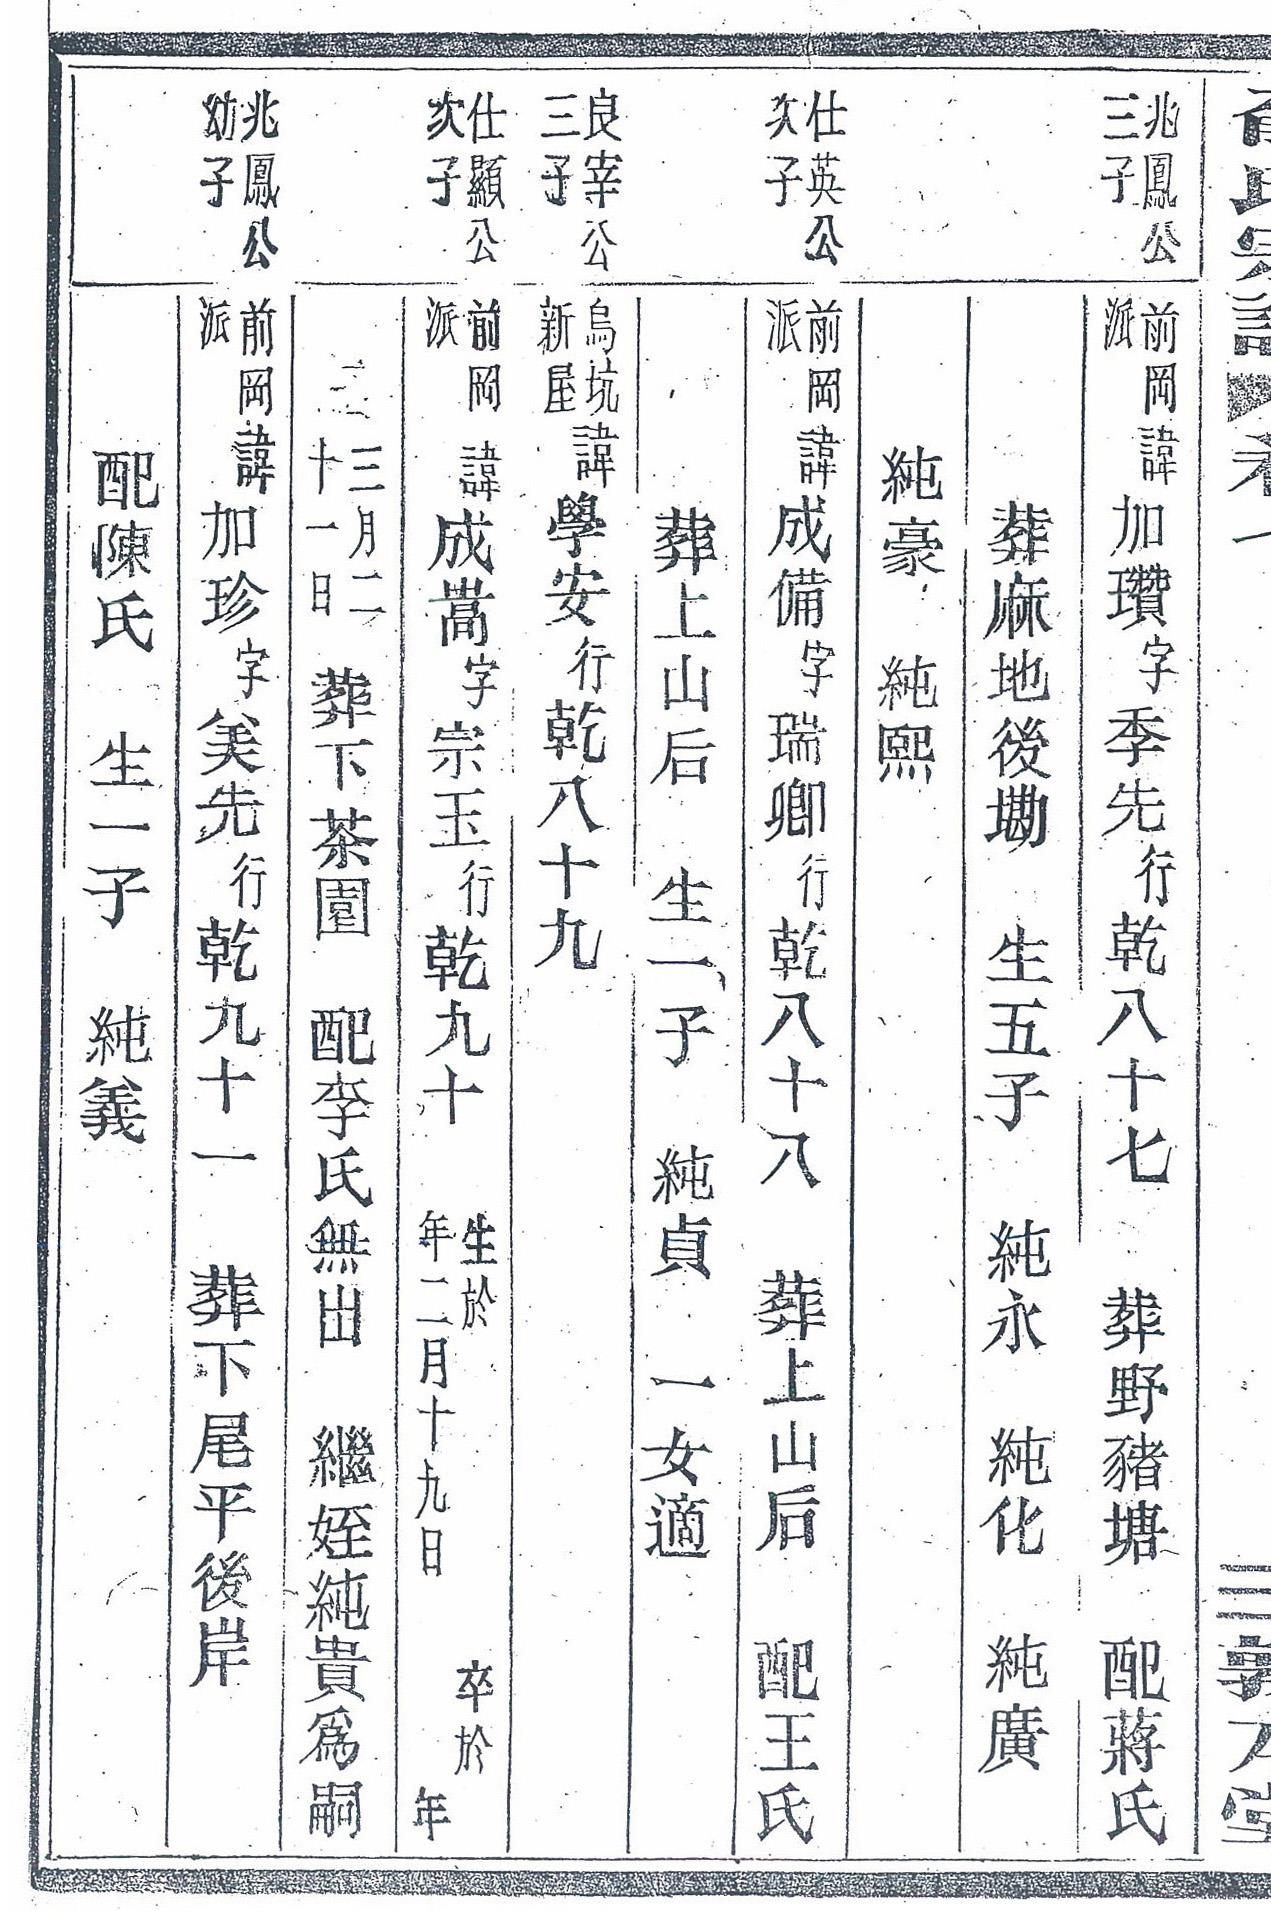 兆鳳公
三子
前岡
派
諱加瓚字季先行乾八十七 葬野豬塘 配蔣氏
葬麻地後墈 生五子 純永 純化 純廣
純豪 純熙
仕英公
次子
前岡
派
諱成備字瑞卿行乾八十八 葬上山后 配王氏
葬上山后 生一子 純貞 一女適
良宰公
三子
烏坑
新屋
諱學安行乾八十九
仕顯公
次子
前岡
派
諱成嵩字宗玉行乾九十
生於
年二月十九日
卒於
年
三月二
十一日
葬下茶園 配李氏無出 繼姪純貴為嗣
兆鳳公
幼子
前岡
派
諱加珍字美先行乾九十一 葬下尾平後岸
配陳氏 生一子 純義